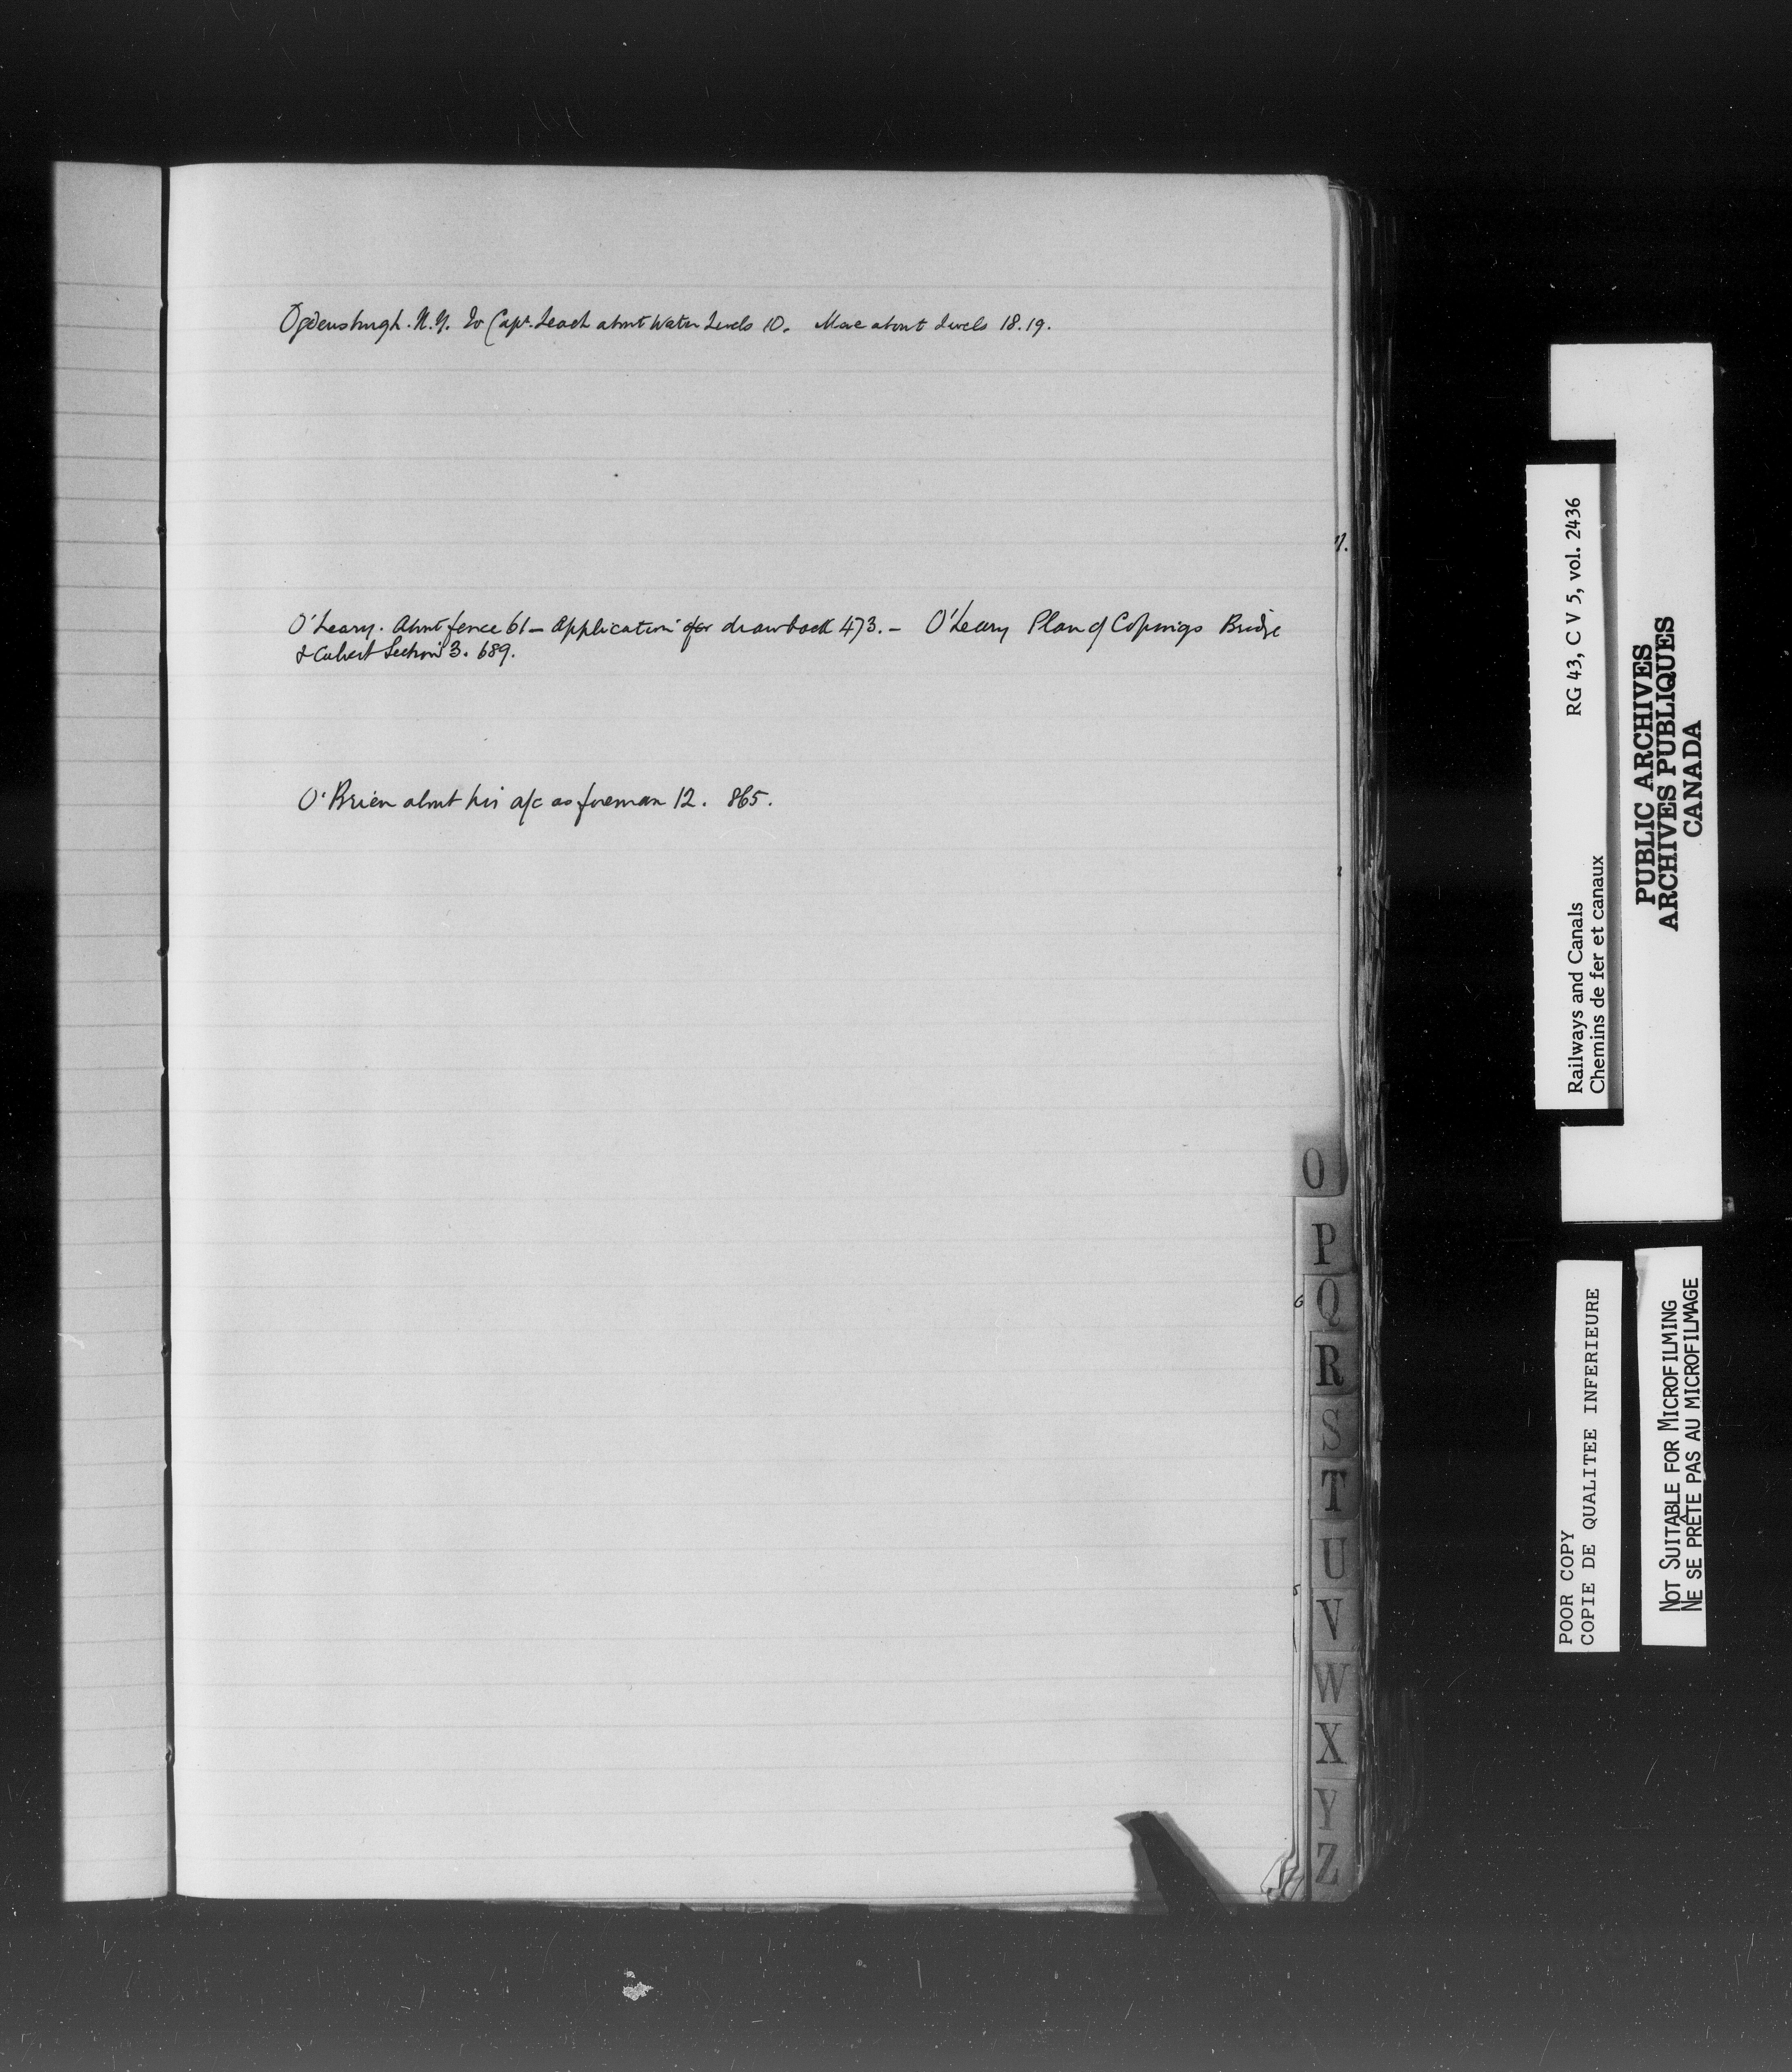 Ogdensburgh. N.Y. To Capt. Leach about Water Levels 10. More about Levels 18.19.
O'Leary. About fence 61 – Application for drawback 473. – O'Leary Plan of Copings Bridge
& Culvert Section 3. 689.
O'Brien about his a/c as foreman 12. 865.
O
P
Q
R
S
T
U
V
W
X
Y
Z
Railways and Canals RG 43, C V 5, vol. 2436
Chemins de fer et canaux
PUBLIC ARCHIVES
ARCHIVES PUBLIQUES
CANADA
POOR COPY
COPIE DE QUALITEE INFERIEURE
NOT SUITABLE FOR MICROFILMING
NE SE PRÊTE PAS AU MICROFILMAGE